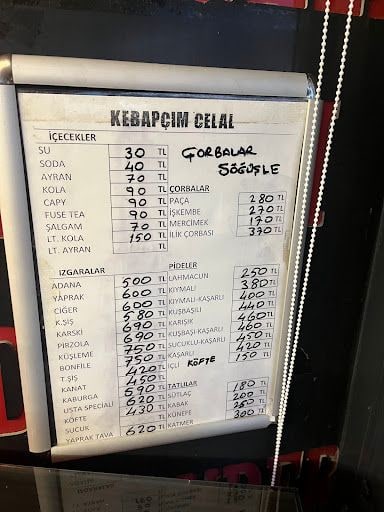 KEBAPÇIM CELAL
İÇECEKLER
SU 30 TL
SODA 40 TL
AYRAN 70 TL
KOLA 90 TL
CAPY 90 TL
FUSE TEA 90 TL
ŞALGAM 70 TL
LT. KOLA 150 TL
LT. AYRAN TL
IZGARALAR
ADANA 500 TL
YAPRAK 600 TL
CİĞER 600 TL
K.ŞİŞ 580 TL
KARSKI 690 TL
PİRZOLA 690 TL
KÜŞLEME 750 TL
BONFİLE 750 TL
T.ŞİŞ 420 TL
KANAT 450 TL
KABURGA 590 TL
USTA SPECİALİ 620 TL
KÖFTE 430 TL
SUCUK TL
YAPRAK TAVA 620 TL
ÇORBALAR
SÖĞÜŞLE
ÇORBALAR
PAÇA 280 TL
İŞKEMBE 270 TL
MERCİMEK 170 TL
İLİK ÇORBASI 370 TL
PİDELER
LAHMACUN 250 TL
KIYMALI 380 TL
KIYMALI-KAŞARLI 400 TL
KUŞBAŞILI 440 TL
KARIŞIK 460 TL
KUŞBAŞI-KAŞARLI 460 TL
SUCUKLU-KAŞARLI 450 TL
KAŞARLI 420 TL
İÇLİ KÖFTE 150 TL
TATLILAR
SÜTLAÇ 180 TL
KABAK 200 TL
KÜNEFE 250 TL
KATMER 300 TL